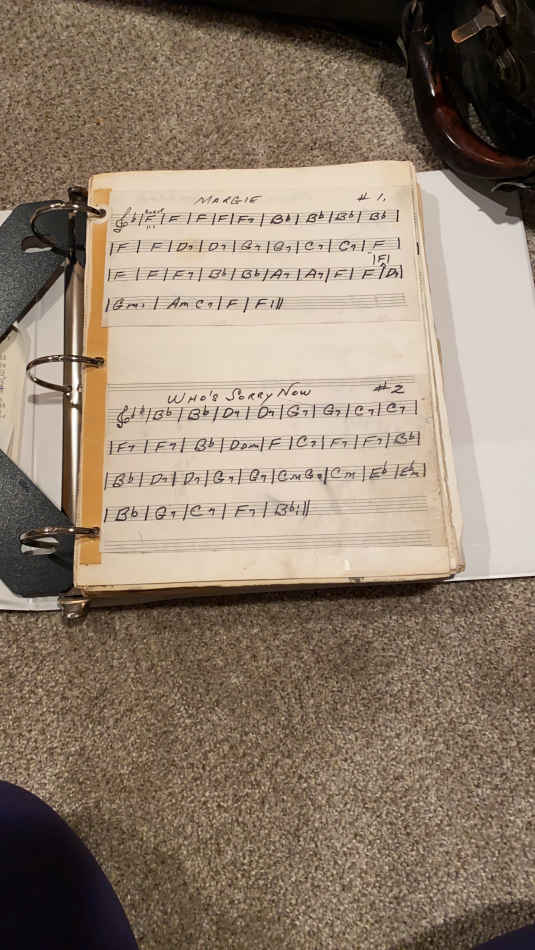 MARGIE #1.
b | F | F | F | F | F7 | Bb | Bb | Bb | Bb |
| F | F | D7 | D7 | G7 | G7 | C7 | C7 | F |
|F|
| F | F | F7 | Bb | Bb | A7 | A7 | F | F | D7 |
| Gm7 | Am C7 | F | F ||
WHO'S SORRY NOW #2
bb | Bb | Bb | D7 | D7 | G7 | G7 | C7 | C7 |
| F7 | F7 | Bb | Ddm | F | C7 | F7 | F7 | Bb |
| Bb | D7 | D7 | G7 | G7 | Cm G7 | Cm | Eb | Ebm |
| Bb | G7 | C7 | F7 | Bb ||